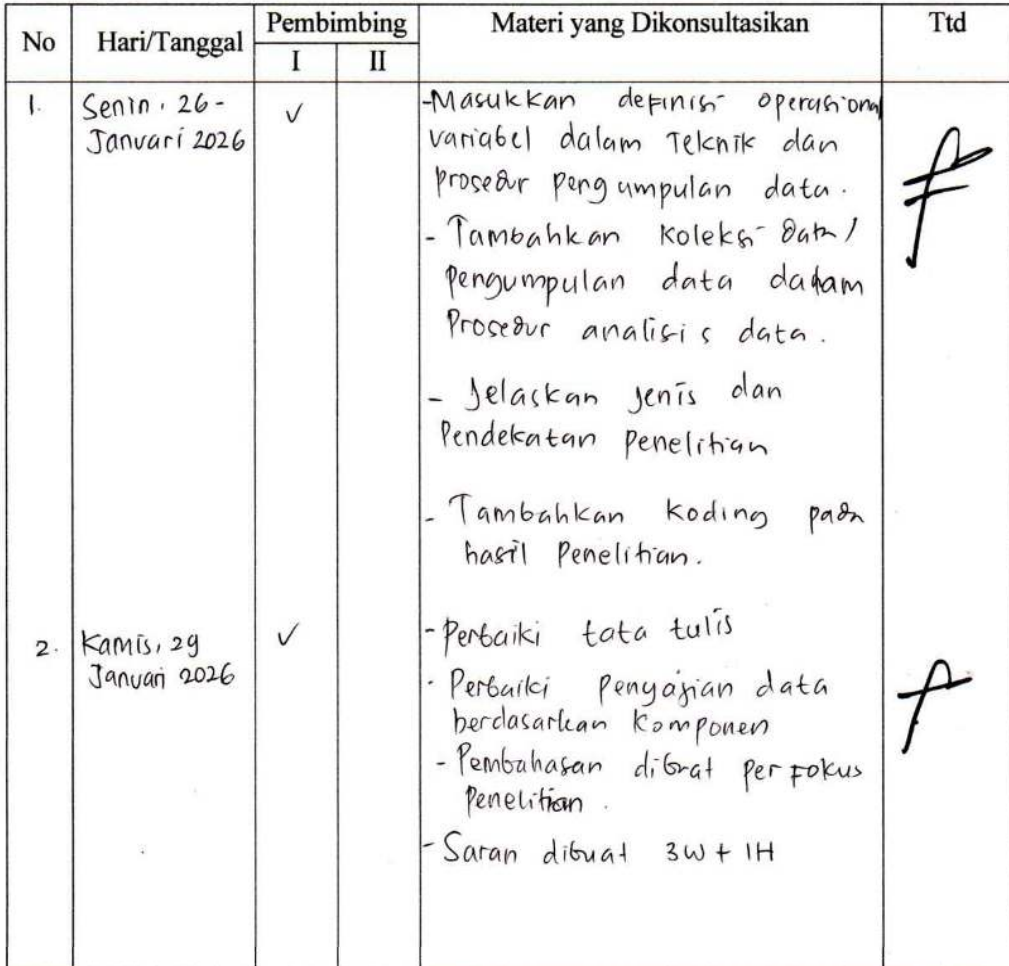 No Hari/Tanggal Pembimbing Materi yang Dikonsultasikan Ttd
I II
1. Senin, 26- ✓ -Masukkan definisi operasional
Januari 2026 variabel dalam Teknik dan
prosedur pengumpulan data.
- Tambahkan koleksi data/
pengumpulan data dalam
Prosedur analisis data.
- Jelaskan jenis dan
Pendekatan penelitian
- Tambahkan koding pada
hasil Penelitian.
2. Kamis, 29 ✓ -Perbaiki tata tulis
Januari 2026 - Perbaiki penyajian data
berdasarkan komponen
- Pembahasan dibuat per fokus
Penelitian.
- Saran dibuat 3W + 1H